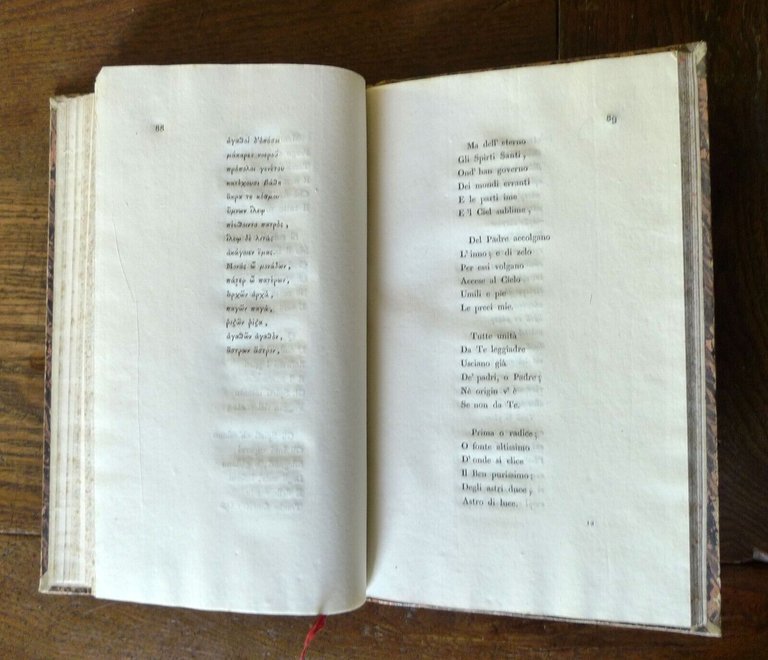 68
ἀγαθοὶ δ'ὁπόσοι
μάκαρες νοεροῦ
πρόπολοι γενέτου
κατέχουσι βάθη
ἄκρα τε κόσμου
ὕμνων ἵλεῳ
πύθοιντο πατρὸς,
ἵλεῳ δὲ λιτὰς
ἀνάγοιεν ἐμάς.
Μονὰς ὦ μονάδων,
πάτερ ὦ πατέρων,
ἀρχῶν ἀρχὰ,
παγῶν παγὰ,
ῥιζῶν ῥίζα,
ἀγαθῶν ἀγαθὸν,
ἄστρων ἄστρον,
69
Ma dell' eterno
Gli Spirti Santi,
Ond' han governo
Dei mondi erranti
E le parti ime
E 'l Ciel sublime,
Del Padre accolgano
L'inno; e di zelo
Per essi volgano
Accese al Cielo
Umili e pie
Le preci mie.
Tutte unità
Da Te leggiadre
Usciano già
De' padri, o Padre;
Nè origin v' è
Se non da Te.
Prima o radice;
O fonte altissimo
D' onde si elice
Il Ben purissimo;
Degli astri duce,
Astro di luce.
12